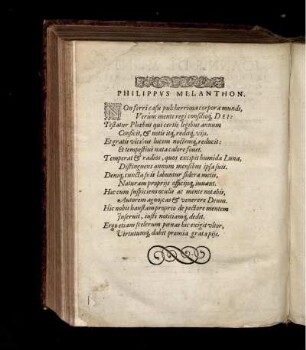 PHILIPPVS MELANTHON.
NOn ferri casu pulcherrima corpora mundi,
Verùm mente regi consilioq́; DEI:
Testatur Phœbus qui certis legibus annum
Conficit, & notis itq́; reditq́; vijs.
Et grata vicibus lucem noctemq́; reducit:
Et tempestiuo nata calore fouet.
Temperat & radios, quos excipit humida Luna,
Distinguens annum mensibus ipsa suis.
Deniq́; cuncta sic labuntur sidera motu,
Naturam proprijs officijsq́; iuuant.
Huc cum suspiciens oculis ac mente notabis,
Autorem agnoscas & venerere Deum.
Hic nobis honestam proprio de pectore mentem
Inseruit, iusti notitiamq́; dedit.
Ergo etiam scelerum pœnas hic exigit vltor,
Virtutumq́; dabit præmia grata pijs.